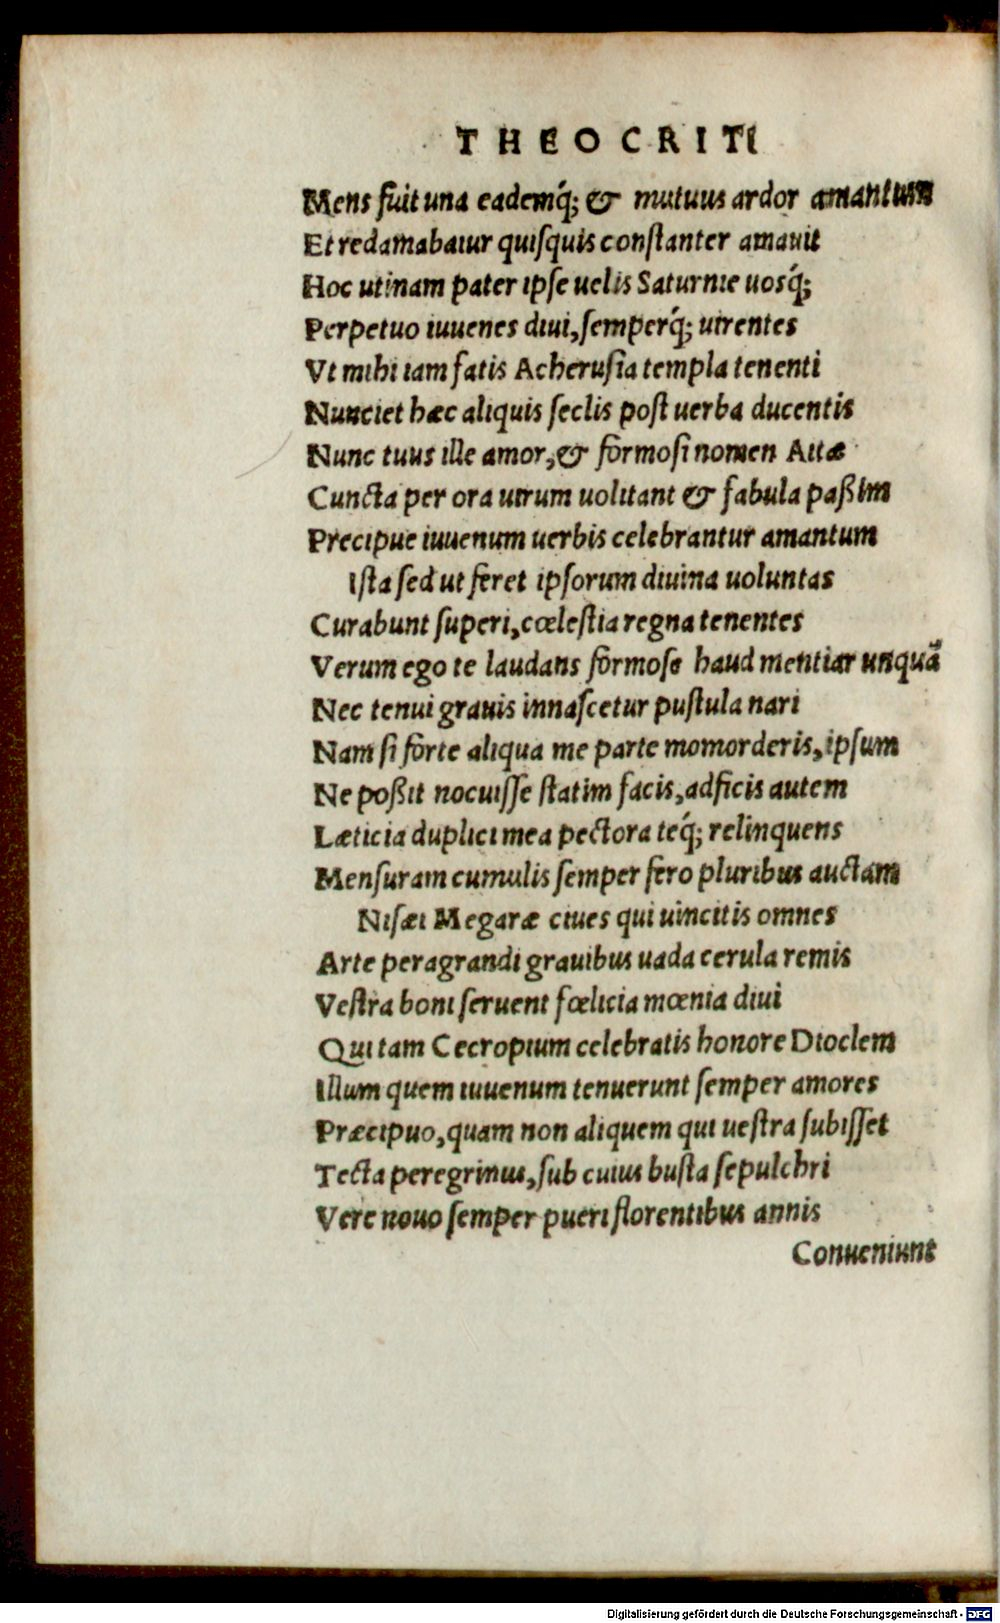 THEOCRITI
Mens fuit una eademq́; & mutuus ardor amantum
Et redamabatur quisquis constanter amauit
Hoc utinam pater ipse uelis Saturnie uosq́;
Perpetuo iuuenes diui, semperq́; uirentes
Vt mihi iam fatis Acherusia templa tenenti
Nunciet hæc aliquis seclis post uerba ducentis
Nunc tuus ille amor, & formosi nomen Aitæ
Cuncta per ora uirum uolitant & fabula paßim
Precipue iuuenum uerbis celebrantur amantum
Ista sed ut feret ipsorum diuina uoluntas
Curabunt superi, cœlestia regna tenentes
Verum ego te laudans formose haud mentiar unquã
Nec tenui grauis innascetur pustula nari
Nam si forte aliqua me parte momorderis, ipsum
Ne poßit nocuisse statim facis, adficis autem
Læticia duplici mea pectora teq́; relinquens
Mensuram cumulis semper fero pluribus auctam
Nisæi Megaræ ciues qui uincitis omnes
Arte peragrandi grauibus uada cerula remis
Vestra boni seruent fœlicia mœnia diui
Qui tam Cecropium celebratis honore Dioclem
Illum quem iuuenum tenuerunt semper amores
Præcipuo, quam non aliquem qui uestra subisset
Tecta peregrinus, sub cuius busta sepulchri
Vere nouo semper pueri florentibus annis
Conueniunt
Digitalisierung gefördert durch die Deutsche Forschungsgemeinschaft - DFG